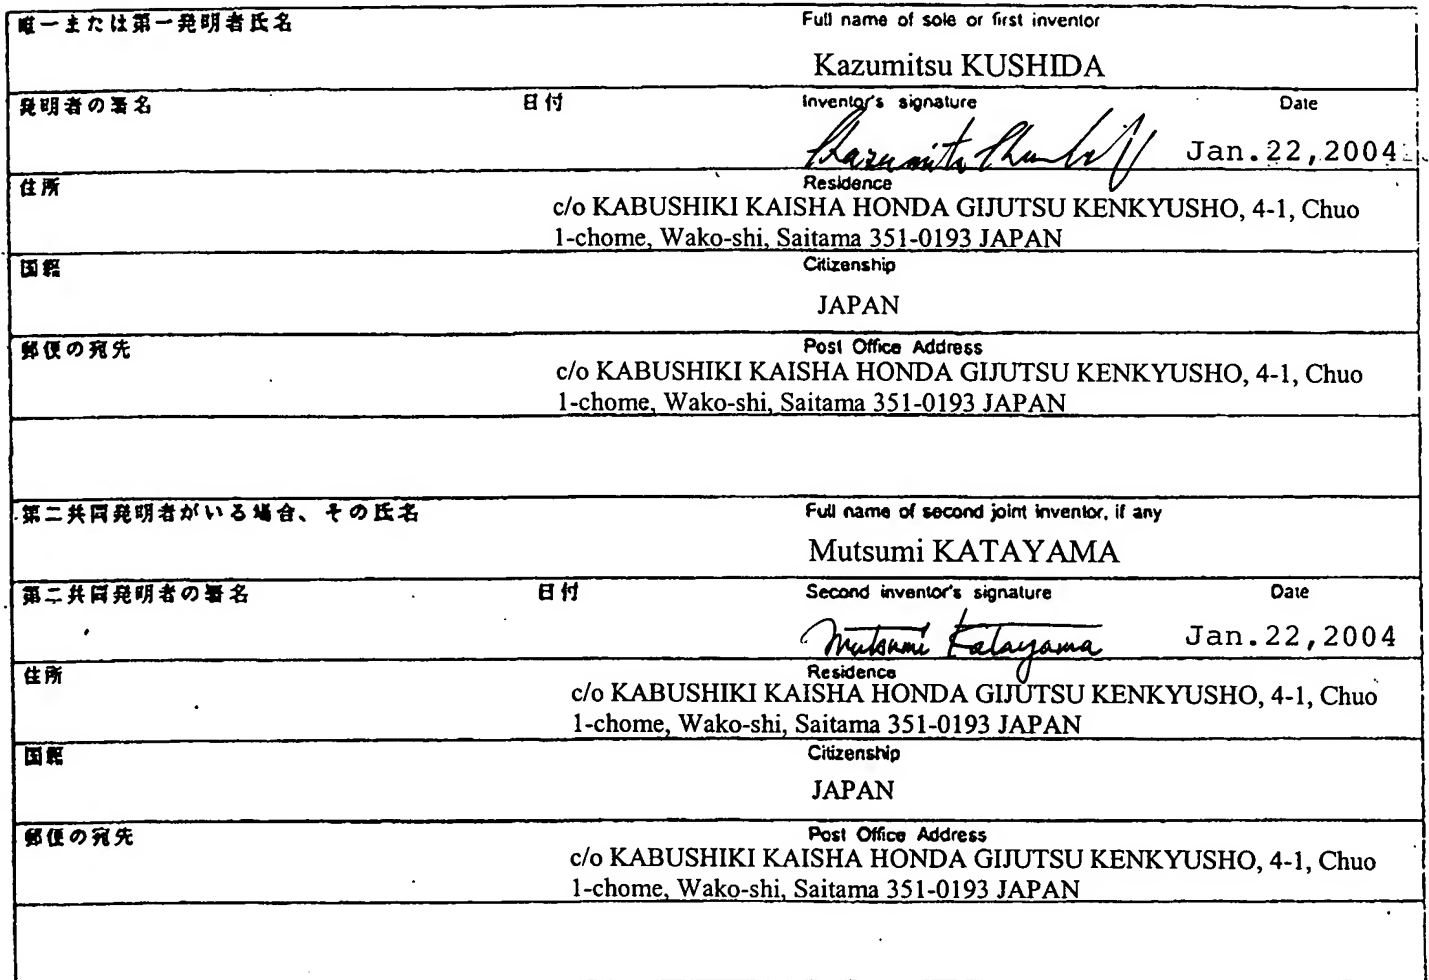 唯一または第一発明者氏名 Full name of sole or first inventor
Kazumitsu KUSHIDA
発明者の署名 日付 Inventor's signature Date
Kazumitsu Jan.22,2004
住所 Residence
c/o KABUSHIKI KAISHA HONDA GIJUTSU KENKYUSHO, 4-1, Chuo
1-chome, Wako-shi, Saitama 351-0193 JAPAN
国籍 Citizenship
JAPAN
郵便の宛先 Post Office Address
c/o KABUSHIKI KAISHA HONDA GIJUTSU KENKYUSHO, 4-1, Chuo
1-chome, Wako-shi, Saitama 351-0193 JAPAN
第二共同発明者がいる場合、その氏名 Full name of second joint inventor, if any
Mutsumi KATAYAMA
第二共同発明者の署名 日付 Second inventor's signature Date
Mutsumi Katayama Jan.22,2004
住所 Residence
c/o KABUSHIKI KAISHA HONDA GIJUTSU KENKYUSHO, 4-1, Chuo
1-chome, Wako-shi, Saitama 351-0193 JAPAN
国籍 Citizenship
JAPAN
郵便の宛先 Post Office Address
c/o KABUSHIKI KAISHA HONDA GIJUTSU KENKYUSHO, 4-1, Chuo
1-chome, Wako-shi, Saitama 351-0193 JAPAN